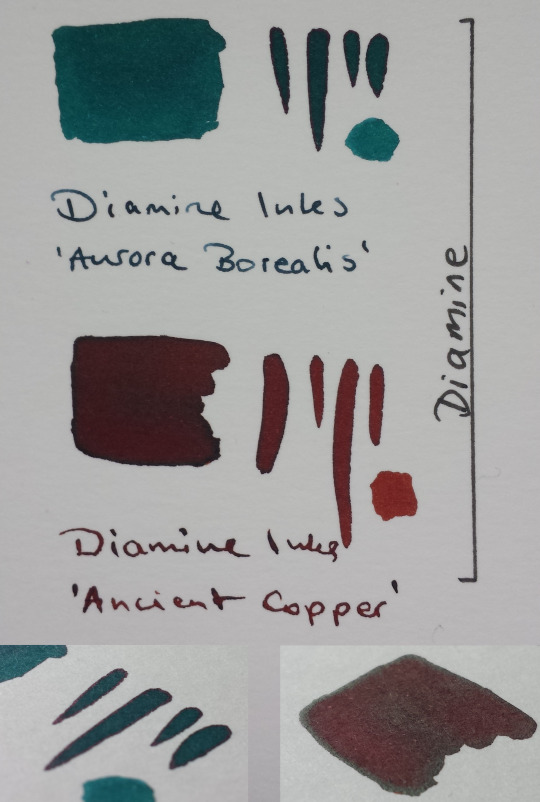 Diamine Inks
'Aurora Borealis'
Diamine
Diamine Inks
'Ancient Copper'